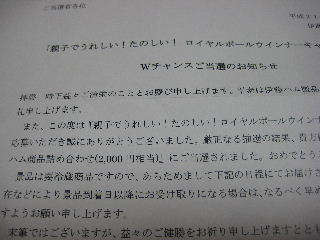 ご当選者各位
平成21
伊
「親子でうれしい!たのしい! ロイヤルポールウインナーキャ
Wチャンスご当選のお知らせ
拝啓 時下益々ご清栄のこととお慶び申し上げます。平素は伊藤ハム製品
礼申し上げます。
また、この度は『親子でうれしい!たのしい! ロイヤルポールウイン
応募いただき誠にありがとうございました。厳正なる抽選の結果、貴方
ハム商品詰め合わせ(2,000 円相当)』にご当選されました。おめでとう
景品は要冷蔵商品ですので、あらためまして下記の日程にてお届けさ
在などにより景品到着日以降にお受け取りになる場合は、なるべく早め
すようお願い申し上げます。
末筆ではございますが、益々のご健勝をお祈り申し上げますととも